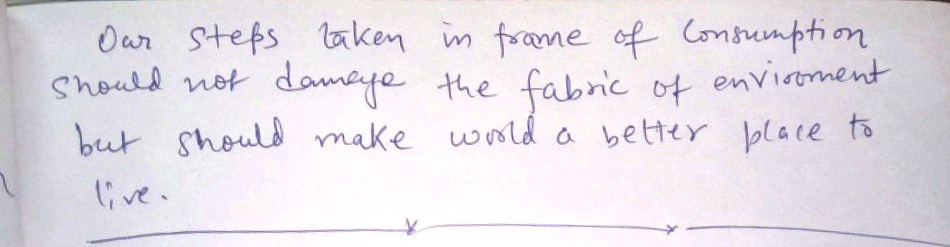 Our steps taken in frame of Consumption
should not damage the fabric of enviroment
but should make world a better place to
live.